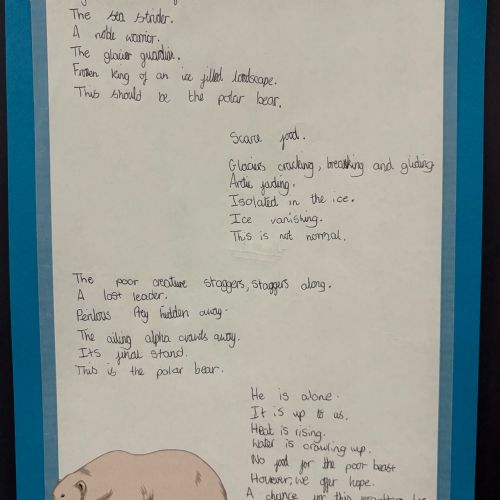 The sea strider.
A noble warrior.
The glacier guardian.
Frozen king of an ice filled landscape.
This should be the polar bear.
Scarce food.
Glaciers cracking, breaking and gliding.
Arctic fading.
Isolated in the ice.
Ice vanishing.
This is not normal.
The poor creature staggers, staggers along.
A lost leader.
Perilous Prey hidden away.
The ailing alpha crawls away.
Its final stand.
This is the polar bear.
He is alone.
It is up to us.
Heat is rising.
Water is crawling up.
No food for the poor beast
However, we offer hope.
A chance for this